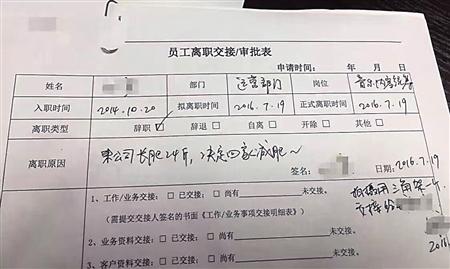 员工离职交接/审批表
申请时间： 年 月 日
姓名 部门 运营部门 岗位 音乐内容
入职时间 2014.10.20 拟离职时间 2016.7.19 正式离职时间 2016.7.19
离职类型 辞职☑ 辞退□ 自离□ 开除□ 其他□
离职原因 来公司长肥24斤，决定回家减肥～
签名： 日期：2016.7.19
1、工作/业务交接：□ 已交接；□ 尚有 未交接。
(需提交交接人签名的书面《工作/业务事项交接明细表》)
交接给
2、业务资料交接：□ 已交接；□ 尚有 未交接。
2016
3、客户资料交接：□ 已交接；□ 尚有 未交接。